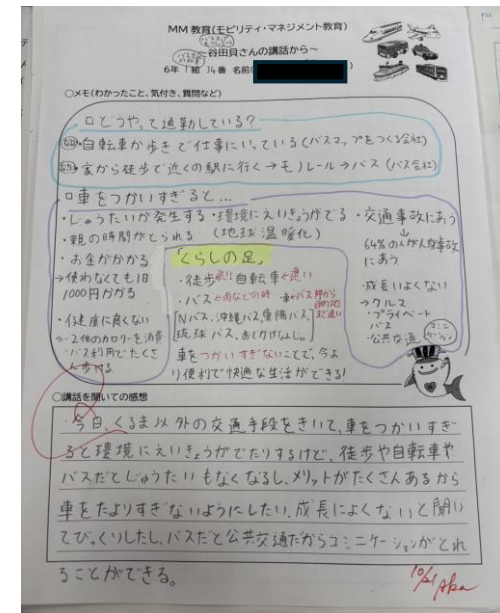 MM教育(モビリティ・マネジメント教育)
～谷田貝さんの講話から～
6年 1組 14番 名前(
○メモ(わかったこと、気付き、質問など)
□どうやって通勤している?
自転車か歩きで仕事にいっている(バスマップをつくる会社)
家から徒歩で近くの駅に行く→モノレール→バス(バス会社)
□車をつかいすぎると…
・じゅうたいが発生する
・環境にえいきょうがでる
(地球温暖化)
・交通事故にあう
↓
64%の人が人身事故
にあう
・親の時間がとられる
・お金がかかる
→使わなくても1日
1000円かかる
・健康に良くない
→2倍のカロリーを消費
・バス利用でたくさ
ん歩ける
「くらしの足」
・徒歩 自転車
・バス
Nバス、沖縄バス、東陽バス、
琉球バス、おでかけなんじぃ
車をつかいすぎないことで、今よ
り便利で快適な生活ができる!
・成長によくない
→クルマ
・プライベート
バス
・公共交通
コミニケーション
○講話を聞いての感想
今日、くるま以外の交通手段をきいて、車をつかいすぎ
ると環境にえいきょうがでたりするけど、徒歩や自転車や
バスだとじゅうたいもなくなるし、メリットがたくさんあるから
車をたよりすぎないようにしたい。成長によくないと聞い
てびっくりしたし、バスだと公共交通だからコミニケーションがとれ
ることができる。
10/21